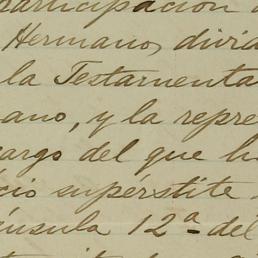 articipación
Hermano, divid
la Testamenta
ano, y la repre
cargo del que h
cio supérstite
úsula 12ª del